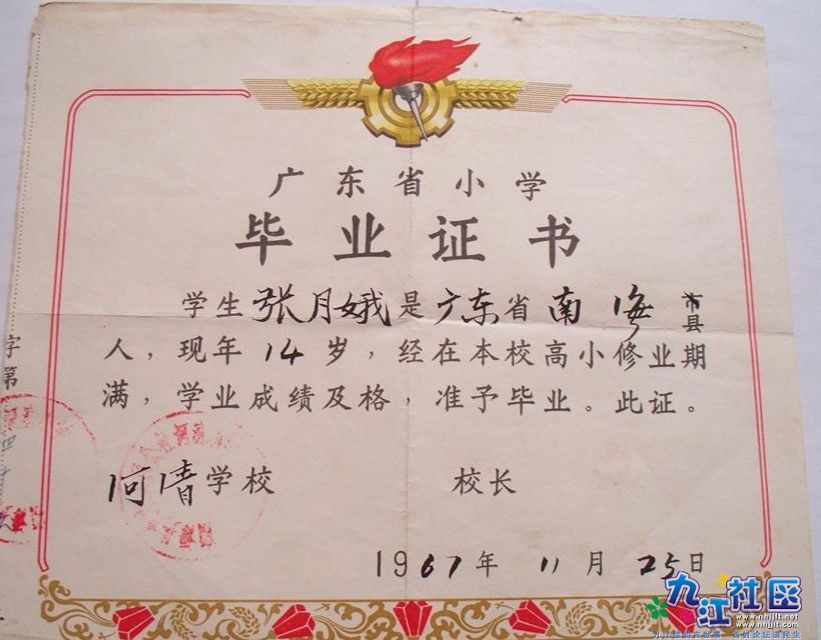 广东省小学
毕业证书
学生张月娥是广东省南海市县
人，现年14岁，经在本校高小修业期
满，学业成绩及格，准予毕业。此证。
河清学校 校长
1967年11月25日
字第
九江社区
www.nhjjlt.net
www.nhjjlt.com